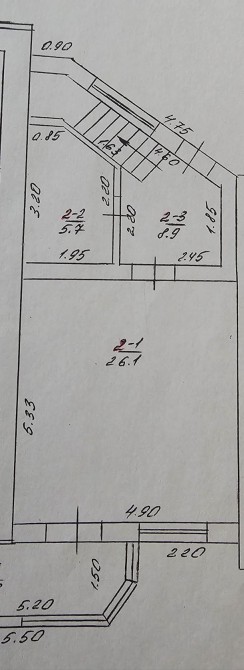 0.90
4.75
0.85
4.60
3.20
2.20
2-2
5.7
2.20
2-3
8.9
1.85
1.95
2.45
2-1
26.1
5.33
4.90
2.20
1.50
5.20
5.50